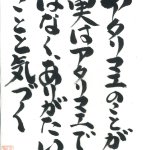 アタリマエのことが
実はアタリマエで
はなく、ありがたい
ことと気づく